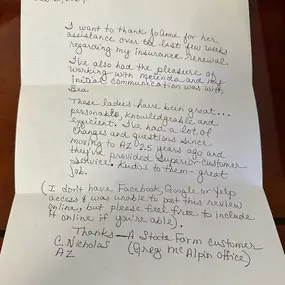 I want to thank JoAnne for her
assistance over the last few weeks
regarding my insurance renewal.
I've also had the pleasure of
working with Melinda and my
initial communication was with
Bea.
These ladies have been great...
personable, knowledgeable and
efficient. I've had a lot of
changes and questions since
moving to AZ 2.5 years ago and
they've provided superior customer
service. Kudos to them - great
job.
(I don't have Facebook, Google or Yelp
access & was unable to post this review
online, but please feel free to include
it online if you're able).
Thanks - A State Farm customer
C. Nicholas (Greg McAlpin office)
AZ